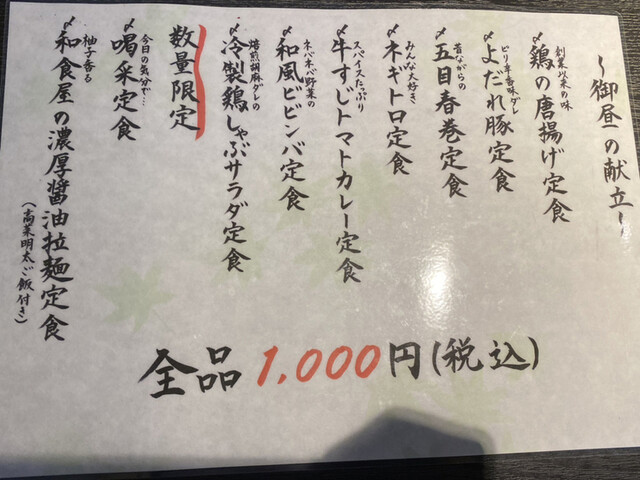 〜御昼の献立〜
創業以来の味
〆鶏の唐揚げ定食
ピリ辛香味ダレ
〆よだれ豚定食
昔ながらの
〆五目春巻定食
みんな大好き
〆ネギトロ定食
スパイスたっぷり
〆牛すじトマトカレー定食
ネバネバ野菜の
〆和風ビビンバ定食
焙煎胡麻ダレの
〆冷製鶏しゃぶサラダ定食
数量限定
今日の気分で…
〆喝采定食
柚子香る
〆和食屋の濃厚醤油拉麺定食
(高菜明太ご飯付き)
全品1,000円(税込)